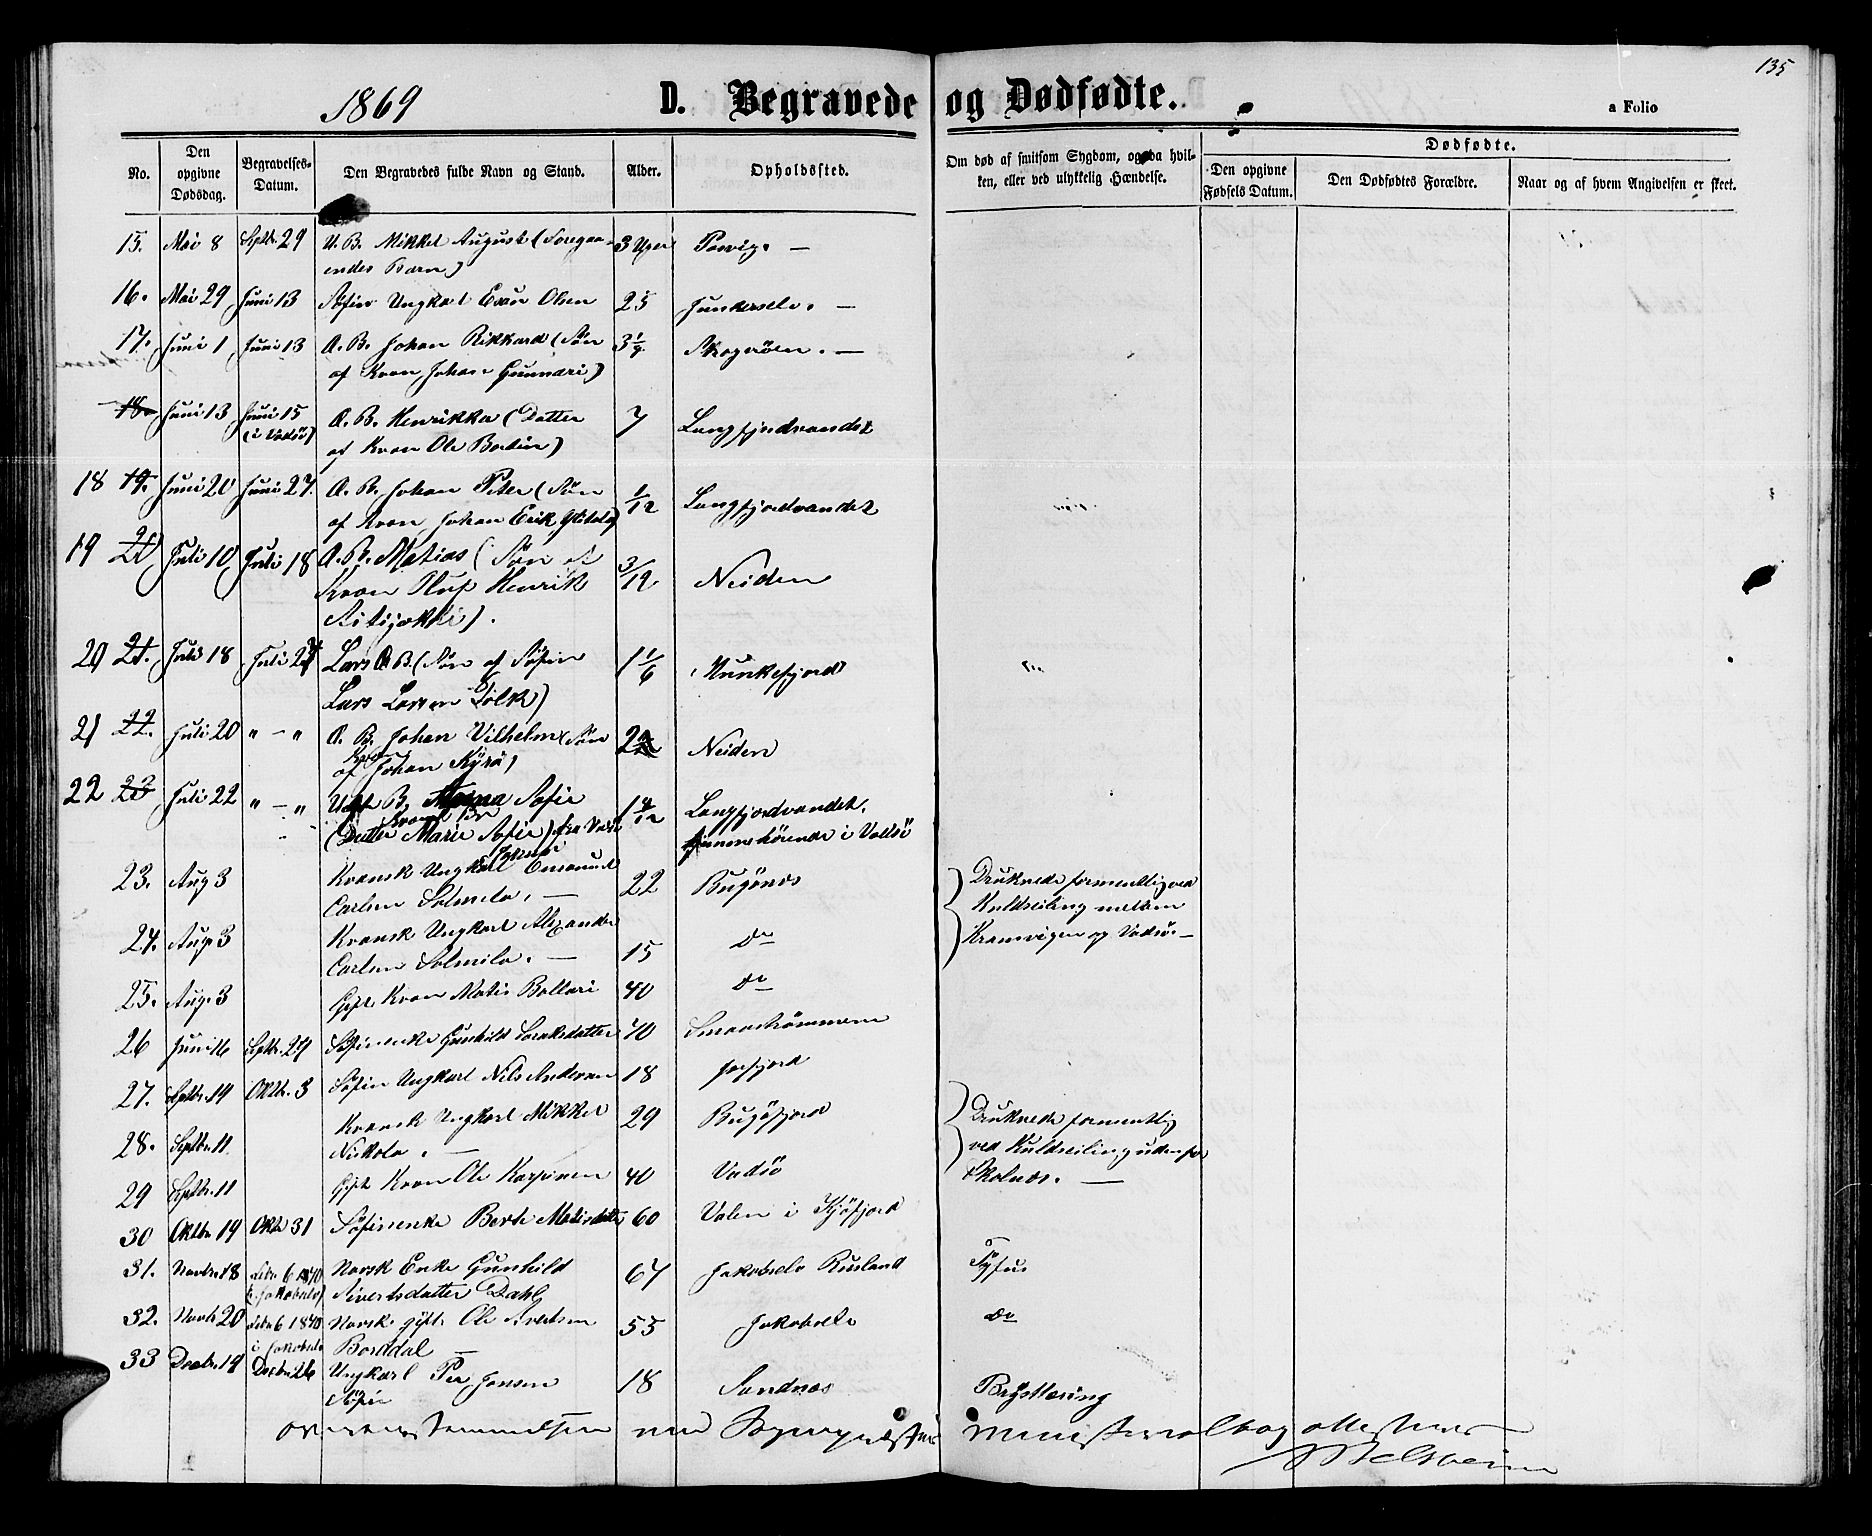 135
1869 D. Begravede og Dødfødte. a Folio
No. Den opgivne Dødsdag. Begravelses-Datum. Den Begravedes fulde Navn og Stand. Alder. Opholdssted. Om død af smitsom Sygdom, og da hvilken, eller ved ulykkelig Hændelse. Dødfødte.
Den opgivne Fødsels Datum. Den Dødfødtes Forældre. Naar og af hvem Angivelsen er skeet.
15. Mai 8 Septbr. 29 U. B. Mikkel August (Foregaa- 3 Uger Pasvig. —
endes Barn)
16. Mai 29 Juni 13 Søfin Ungkarl Even Olsen 25 Junkerelv. —
17. Juni 1 Juni 13 Æ. B. Johan Rikkard (Søn 3 1/2 Skogerøen. —
af Kvæn Johan Gunnari)
18. Juni 13 Juni 15 Æ. B. Henrikka (Datter 7 Langfjordvandet
(i Vadsø) af Kvæn Ole Bodin)
18 19. Juni 20 Juni 27. Æ. B. Johan Peter (Søn 1/12 Langfjordvandet
af Kvæn Johan Erik
19 20 Juli 10 Juli 18 Æ. B. Matias (Søn af 3/12 Neiden
Kvæn Oluf Henrik
20 21. Juli 18 Juli 24 Lars Æ. B. (Søn af Søfin 1 1/6 Munkefjord
Lars Larsen
21 22. Juli 20 " — " Æ. B. Johan Vilhelm (Søn 2 Neiden
af Kvæn Johan Kyrø)
22 23 Juli 22 " — " Uægt B. Sofie 1 Langfjordvandet,
(Datter Marie Sofie) fra Vadsø hjemmehørende i Vadsø
23. Aug 3 Kvænsk Ungkarl Emanuel 22 Bugønes Druknede formentlig ved
Carlsen Solmila. —
24. Aug 3 Kvænsk Ungkarl Alexander 15 do Kuldseiling mellem
Carlsen Solmila. — Kramvigen og Vadsø. —
25. Aug. 3 Gift Kvæn Matis Ballari 40 do
26 Juni 16 Septbr. 29 Søfinenke Gunhild 70 Smaastrømmene
27. Septbr. 19 Oktbr. 3 Søfin Ungkarl Nils Andersen 18 Jarfjord
28. Septbr. 11 Kvænsk Ungkarl Mikkel 29 Bugøfjord Druknede formentlig
Niskala. — ved Kuldseiling udenfor
29 Septbr. 11 Gift Kvæn Ole Karpinen 40 Vadsø Skolnæs. —
30 Oktbr 19 Oktbr 31 Søfinenke Berit Matisdatter 60 Valen i Kjøfjord
31. Novbr. 18 Febr. 6 1870 Norsk Enke Gunhild 67 Jakobselv Rusland Tyfus
(i Jakobselv) Sivertsdatter Dahl
32. Novbr 20 Febr 6 1870 Norsk gift Ole Sivertsen 55 Jakobselv do
i Jakobselv Borddal —
33 Decbr. 19 Decbr. 26 Ungkarl Per Jonsen 18 Sandnæs Brystlæring
Søfin
Overensstemmelsen med Sognepræstens Ministerialbog attesteres